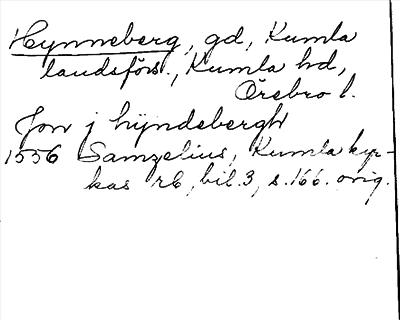 Hynneberg, gd, Kumla
landsförs., Kumla hd,
Örebro l.
Jon j hyndebergh
1556 Samzelius, Kumla kyr-
kas rb, bil. 3, s. 166. orig.